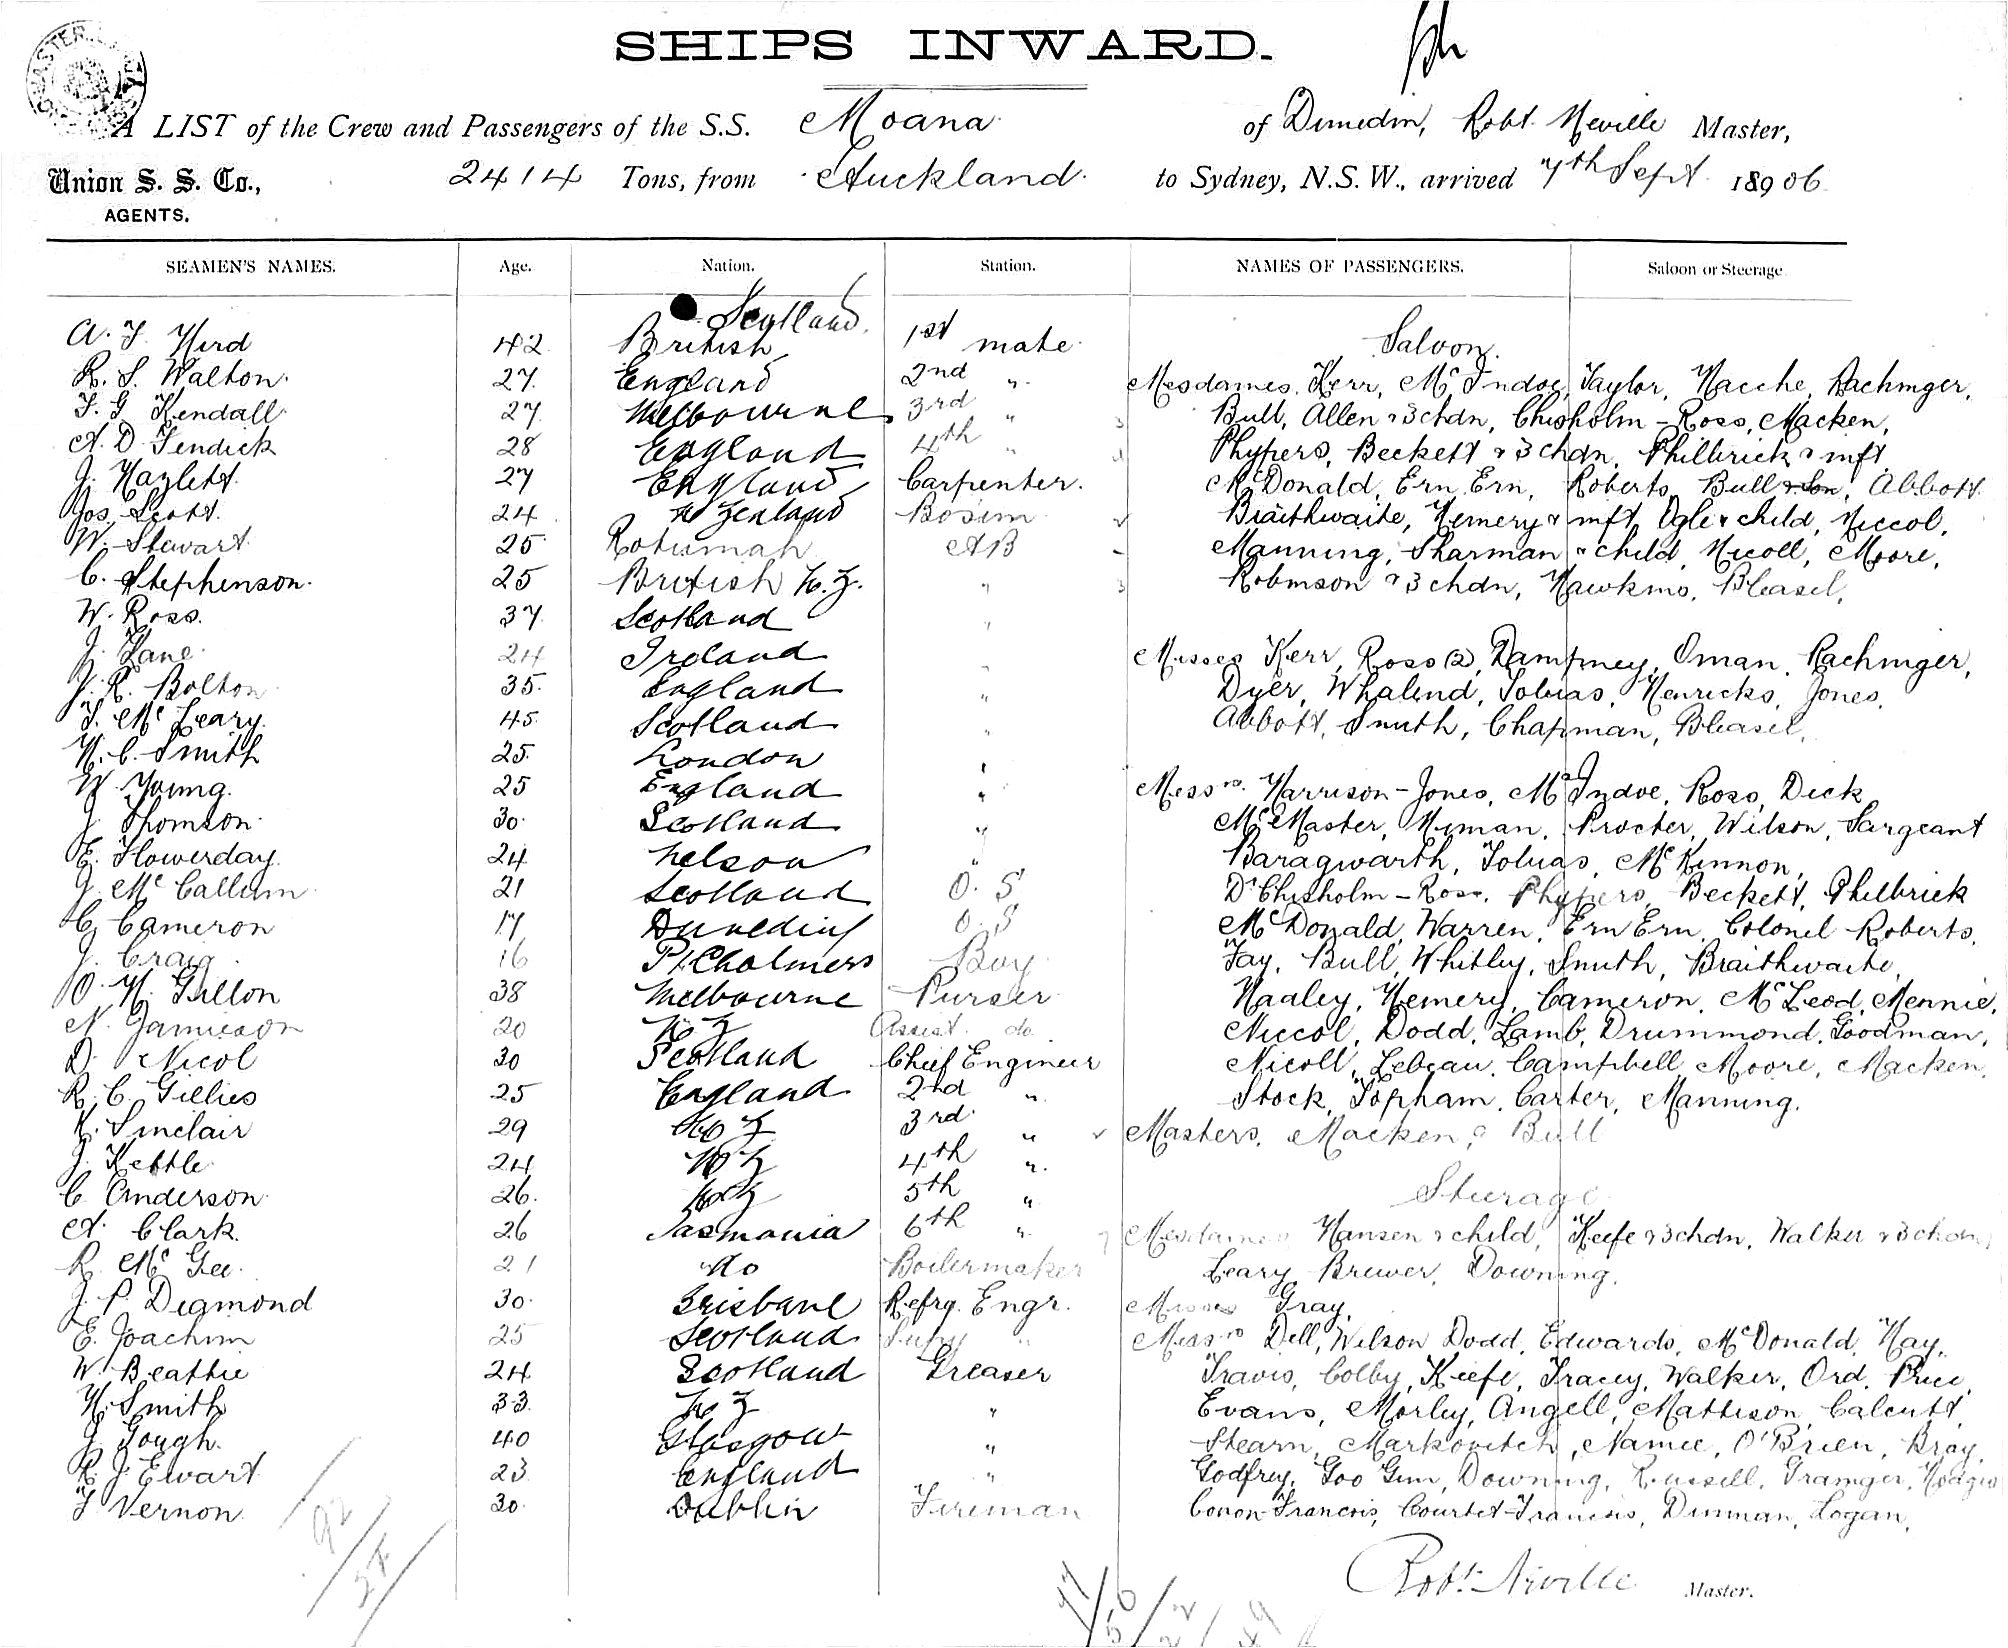 SHIPS INWARD.
A LIST of the Crew and Passengers of the S.S. Moana of Dunedin, Robt. Neville Master,
Union S. S. Co., 2414 Tons, from Auckland to Sydney, N.S.W., arrived 7th Sept 1890 06
AGENTS.
SEAMEN'S NAMES. Age. Nation. Station. NAMES OF PASSENGERS. Saloon or Steerage
Scotland
A. F. Hird 42 British 1st mate
R. S. Walton 27 England 2nd "
F. G Kendall 27 Melbourne 3rd "
A. D. Fendick 28 England 4th "
J. Hazlett 27 England Carpenter.
Jos. Scott 24 N Zealand Bosun
W. Stewart 25 Rotumah AB
C. Stephenson 25 British N.Z. "
W. Ross. 37 Scotland "
J. Lane 24 Ireland "
J. R. Bolton 35 England "
T. McLeary 45 Scotland "
H. C. Smith 25 London "
W. Young 25 England "
J. Thomson 30 Scotland "
E. Flowerday 24 Nelson "
J. McCallum 21 Scotland O. S
C. Cameron 17 Dunedin O. S
J. Craig 16 Pt Chalmers Boy
O. H. Gillon 38 Melbourne Purser
N. Jamieson 20 N Z Assist. do
D. Nicol 30 Scotland Chief Engineer
R. C. Gillies 25 England 2nd "
K. Sinclair 29 N Z 3rd "
J. Kettle 24 N Z 4th "
C. Anderson 26 N Z 5th "
A. Clark 26 Tasmania 6th "
R. McGee 21 do Boilermaker
J. P. Degmond 30 Brisbane Refrg. Engr.
E. Joachim 25 Scotland Supy "
W. Beattie 24 Scotland Greaser
H. Smith 33 N Z "
J. Gough 40 Glasgow "
R. J. Ewart 23 England "
T Vernon 30 Dublin Fireman
Saloon.
Mesdames. Kerr, McIndoe, Taylor, Macche, Rachinger,
Bull, Allen & 3 chdn, Chisholm-Ross, Macken,
Phypers, Beckett & 3 chdn, Philbrick & inft
McDonald, Ern Ern, Roberts, Bull & Son, Abbott
Braithwaite, Hemery & inft, Ogle & child, Niccol,
Manning, Sharman & child, Nicoll, Moore,
Robinson & 3 chdn, Hawkins, Bleasel,
Misses Kerr, Ross (2), Dampney, Oman, Rachinger,
Dyer, Whalend, Tobias, Henricks, Jones,
Abbott, Smith, Chapman, Bleasel,
Messrs. Harrison-Jones, McIndoe, Ross, Dick
McMaster, Hyman, Procter, Wilson, Sargeant
Baragwarth, Tobias, McKinnon,
Dr Chisholm-Ross, Phypers, Beckett, Philbrick
McDonald, Warren, Ern Ern, Colonel Roberts,
Fay, Bull, Whitley, Smith, Braithwaite,
Haaley, Hemery, Cameron, McLeod, Mennie,
Niccol, Dodd, Lamb, Drummond, Goodman,
Nicoll, Lebeau, Campbell, Moore, Macken,
Stock, Topham, Carter, Manning.
Masters, Macken, & Bull
Steerage
Mesdames Hansen & child, Keefe & 3 chdn, Walker & 3 chdn,
Leary, Brewer, Downing.
Misses Gray,
Messrs Dell, Wilson, Dodd, Edwards, McDonald, Hay,
Travis, Colby, Keefe, Tracey, Walker, Ord, Price,
Evans, Morley, Angell, Mattison, Calcutt,
Stearn, Markovitch, Namee, O'Brien, Bray,
Godfrey, Goo Gum, Downing, Russell, Grainger, Hodges
Conon-Francois, Courtet-Francois, Dunnan, Logan,
Robt. Neville Master.